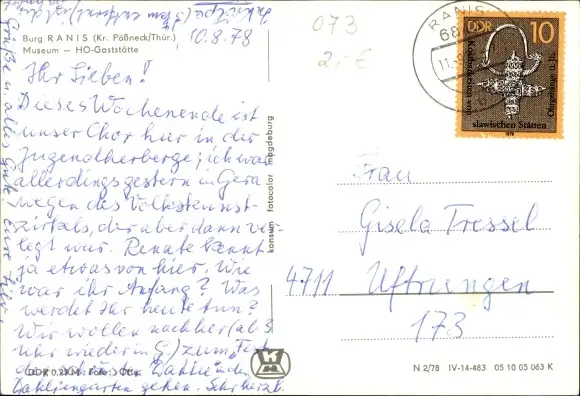 Burg RANIS (Kr. Pößneck/Thür.)
Museum — HO-Gaststätte
10.8.78
073
2,- €
Ihr Lieben!
Dieses Wochenende ist
unser Chor hier in der
Jugendherberge; ich war
allerdings gestern in Gera
wegen des Volkskunst-
zirkels, der aber dann ver-
legt war. Renate kennt
ja etwas von hier. Wie
war ihr Anfang? Was
werdet Ihr heute tun?
Wir wollen nachher (ab 3
Uhr wieder in G.) zum
Dahliengarten gehen. Sehr herzl.
Grüße u. alles gute! Eure
konsum fotocolor magdeburg
RANIS
68
DDR 10
slawischen Stätten
Ohrgehänge 11. Jh.
1978
Frau
Gisela Tressel
4711 Uftrungen
173
DDR 0,20 M
N 2/78 IV-14-483 05 10 05 063 K